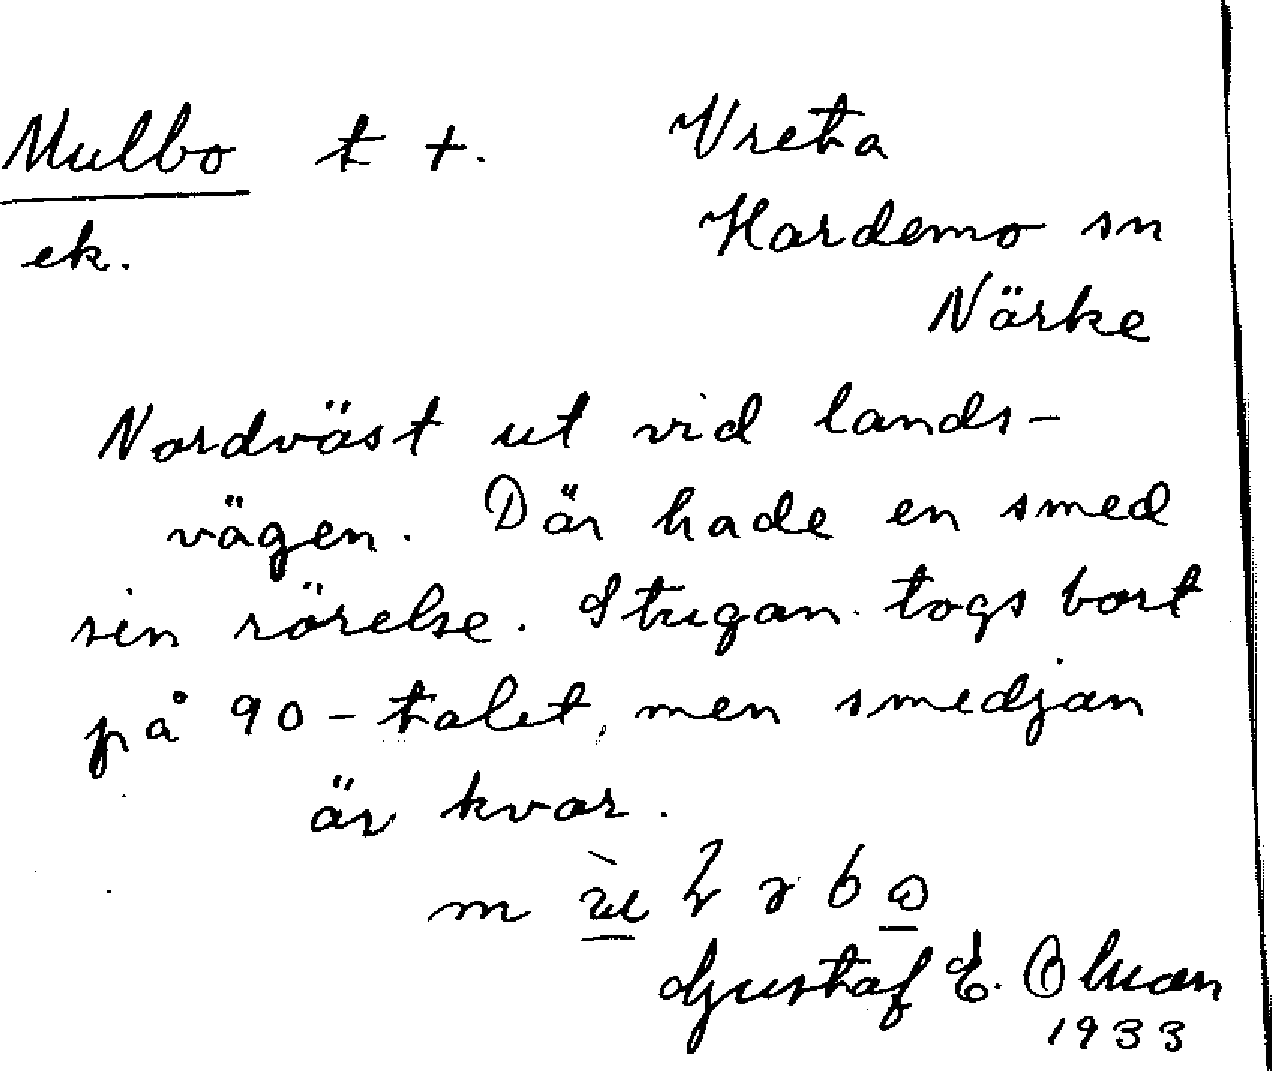 Mulbo t +. Vreta
ek. Hardemo sn
Närke
Nordväst ut vid lands-
vägen. Där hade en smed
sin rörelse. Stugan togs bort
på 90-talet, men smedjan
är kvar.
Gustaf E. Olsson
1933